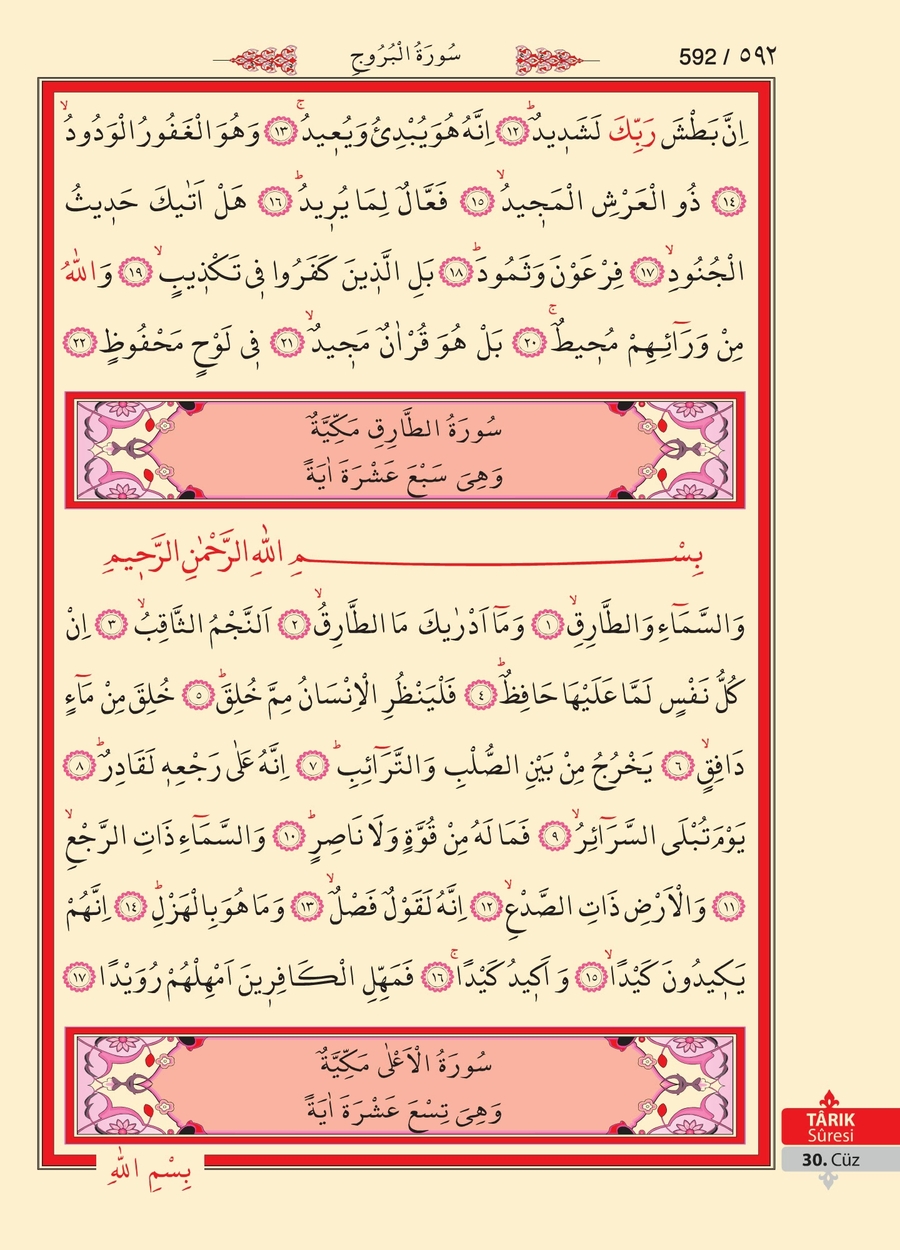 سُورَةُ الْبُرُوجِ
592 / ٥٩٢
اِنَّ بَطْشَ رَبِّكَ لَشَدٖيدٌؕ ﴿١٢﴾ اِنَّهُ هُوَ يُبْدِئُ وَيُعٖيدُۚ ﴿١٣﴾ وَهُوَ الْغَفُورُ الْوَدُودُۙ
﴿١٤﴾ ذُو الْعَرْشِ الْمَجٖيدُۙ ﴿١٥﴾ فَعَّالٌ لِمَا يُرٖيدُؕ ﴿١٦﴾ هَلْ اَتٰيكَ حَدٖيثُ
الْجُنُودِۙ ﴿١٧﴾ فِرْعَوْنَ وَثَمُودَؕ ﴿١٨﴾ بَلِ الَّذٖينَ كَفَرُوا فٖى تَكْذٖيبٍۙ ﴿١٩﴾ وَاللّٰهُ
مِنْ وَرَٓائِهِمْ مُحٖيطٌۚ ﴿٢٠﴾ بَلْ هُوَ قُرْاٰنٌ مَجٖيدٌۙ ﴿٢١﴾ فٖى لَوْحٍ مَحْفُوظٍ ﴿٢٢﴾
سُورَةُ الطَّارِقِ مَكِّيَّةٌ
وَهِىَ سَبْعَ عَشْرَةَ اٰيَةً
بِسْمِ اللّٰهِ الرَّحْمٰنِ الرَّحٖيمِ
وَالسَّمَٓاءِ وَالطَّارِقِۙ ﴿١﴾ وَمَٓا اَدْرٰيكَ مَا الطَّارِقُۙ ﴿٢﴾ اَلنَّجْمُ الثَّاقِبُۙ ﴿٣﴾ اِنْ
كُلُّ نَفْسٍ لَمَّا عَلَيْهَا حَافِظٌؕ ﴿٤﴾ فَلْيَنْظُرِ الْاِنْسَانُ مِمَّ خُلِقَؕ ﴿٥﴾ خُلِقَ مِنْ مَٓاءٍ
دَافِقٍۙ ﴿٦﴾ يَخْرُجُ مِنْ بَيْنِ الصُّلْبِ وَالتَّرَٓائِبِؕ ﴿٧﴾ اِنَّهُ عَلٰى رَجْعِهٖ لَقَادِرٌؕ ﴿٨﴾
يَوْمَ تُبْلَى السَّرَٓائِرُۙ ﴿٩﴾ فَمَا لَهُ مِنْ قُوَّةٍ وَلَا نَاصِرٍؕ ﴿١٠﴾ وَالسَّمَٓاءِ ذَاتِ الرَّجْعِۙ
﴿١١﴾ وَالْاَرْضِ ذَاتِ الصَّدْعِۙ ﴿١٢﴾ اِنَّهُ لَقَوْلٌ فَصْلٌۙ ﴿١٣﴾ وَمَا هُوَ بِالْهَزْلِؕ ﴿١٤﴾ اِنَّهُمْ
يَكٖيدُونَ كَيْدًاۙ ﴿١٥﴾ وَاَكٖيدُ كَيْدًاۚ ﴿١٦﴾ فَمَهِّلِ الْكَافِرٖينَ اَمْهِلْهُمْ رُوَيْدًا ﴿١٧﴾
سُورَةُ الْاَعْلٰى مَكِّيَّةٌ
وَهِىَ تِسْعَ عَشْرَةَ اٰيَةً
بِسْمِ اللّٰهِ
TÂRIK
Sûresi
30. Cüz